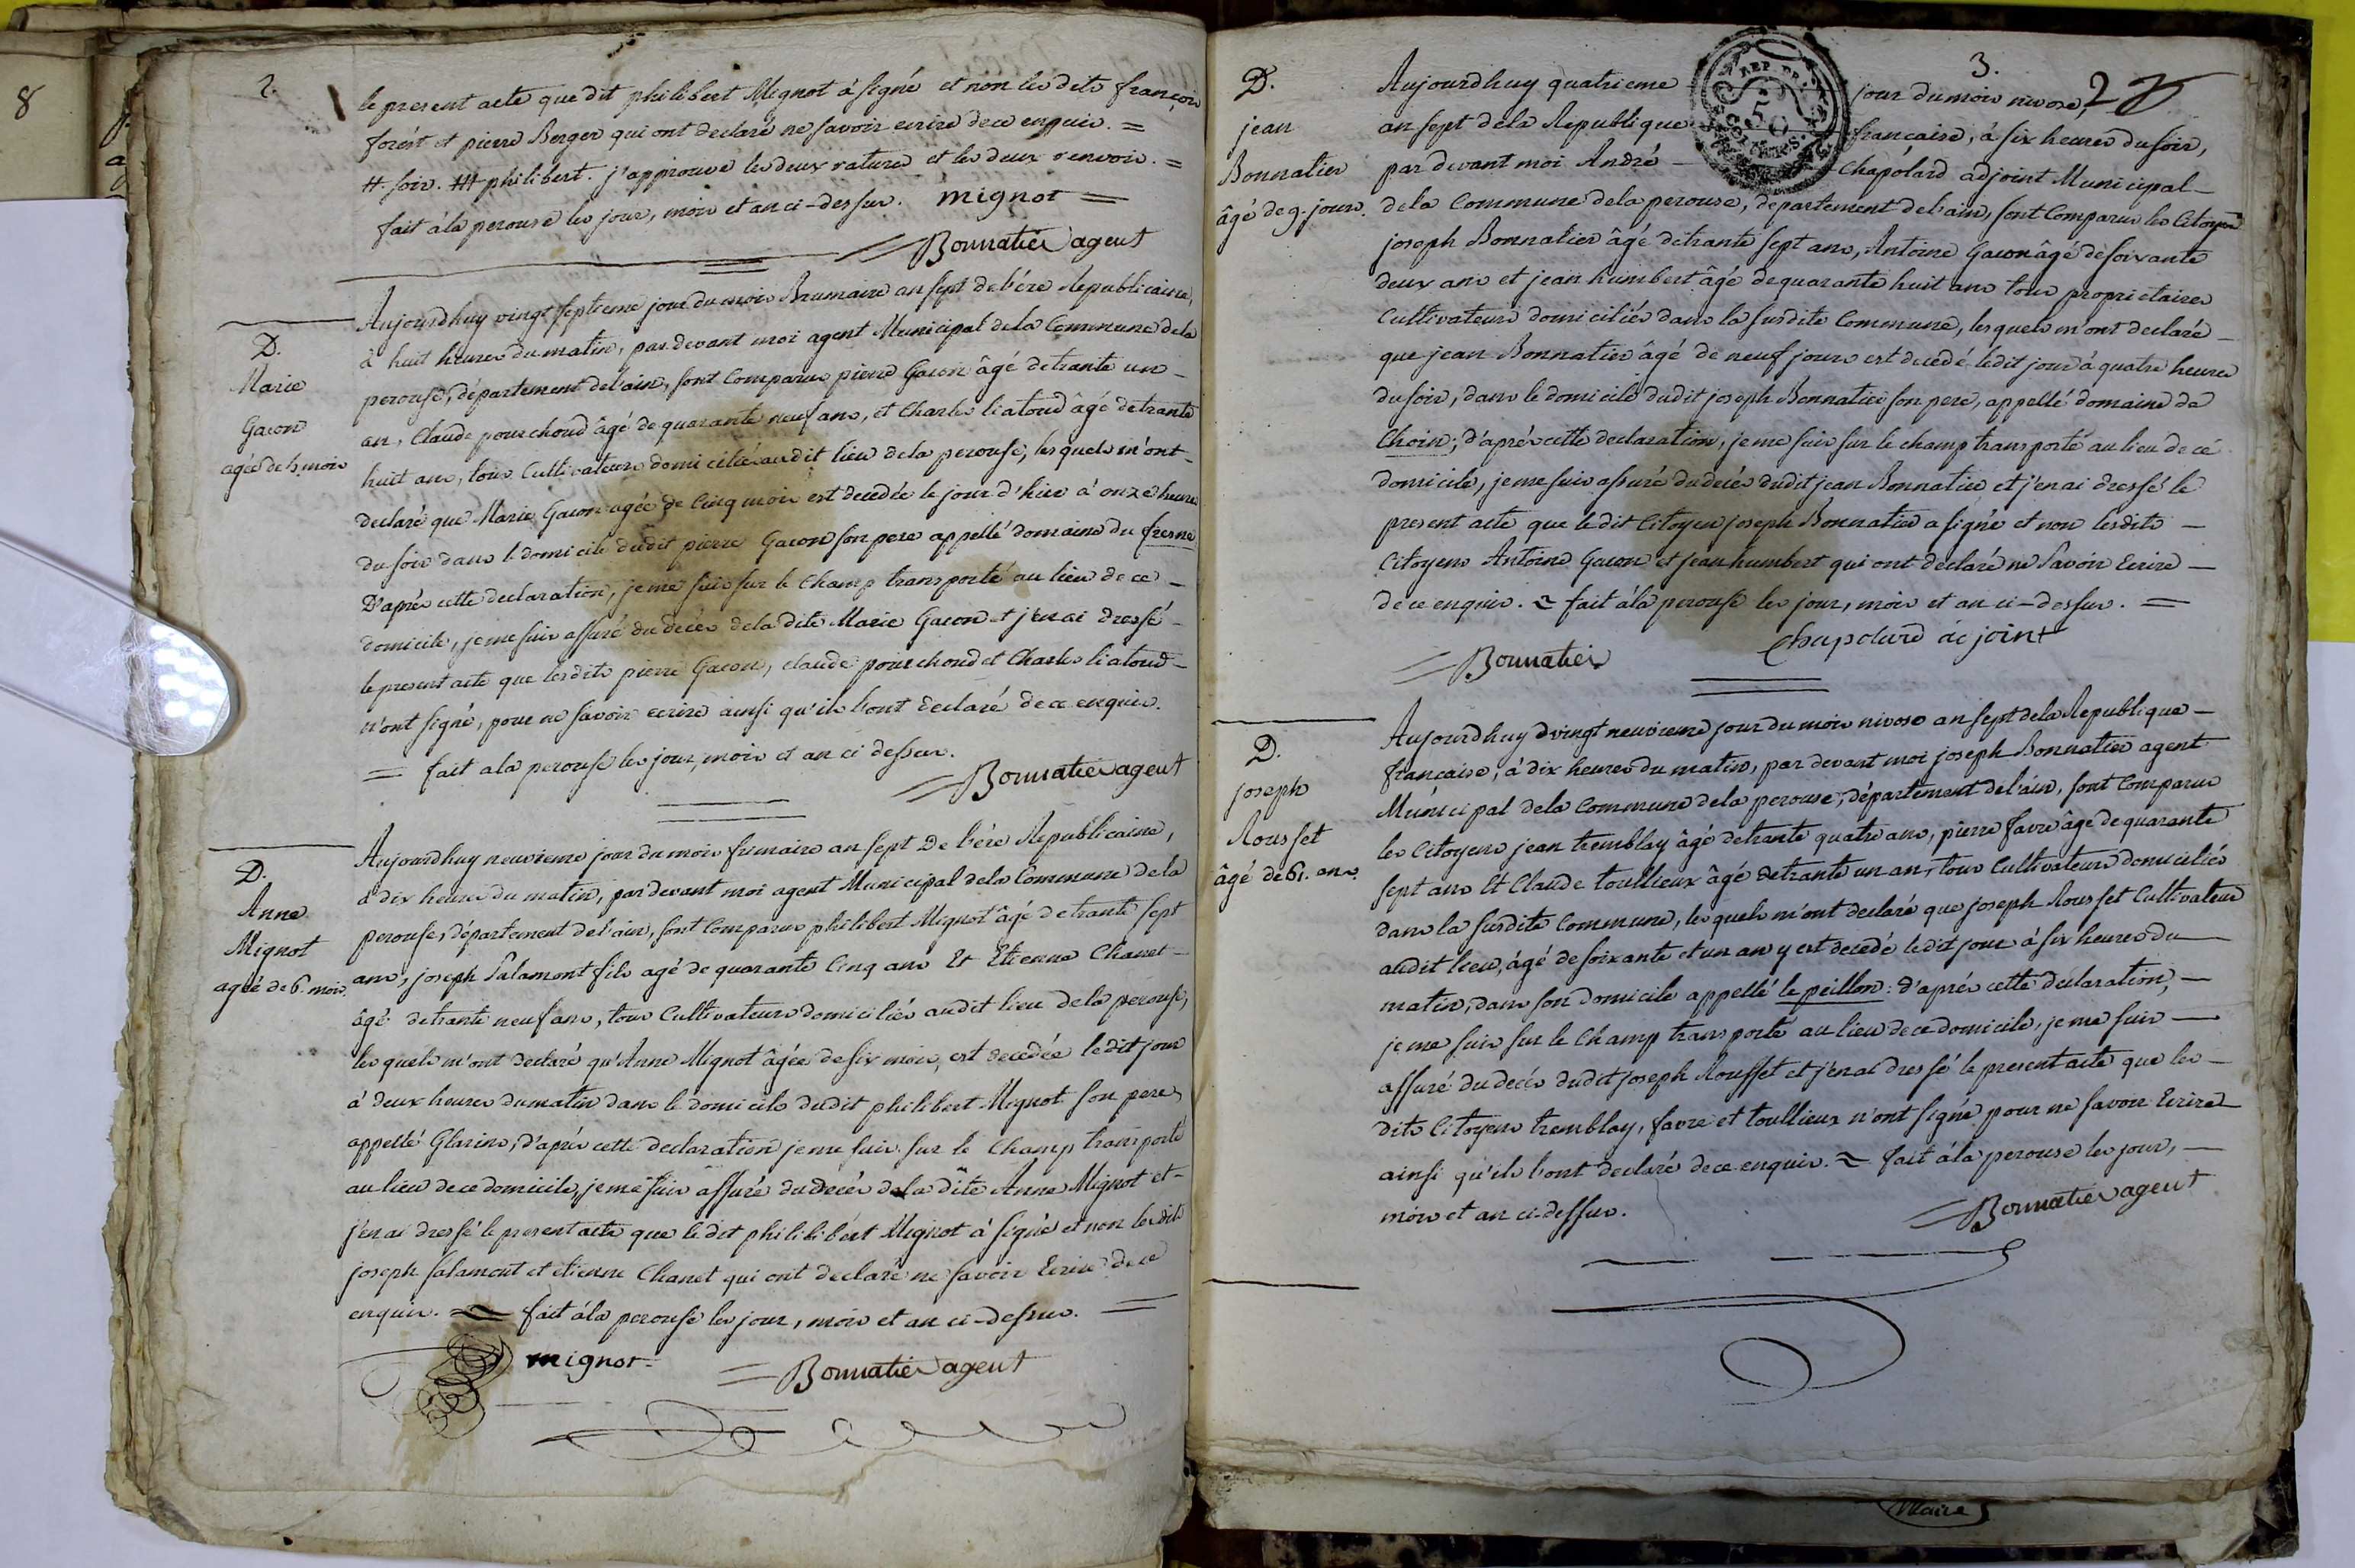 8
2.
le present acte que dit philibert Mignot à signé et non les dits françois
forést et pierre Berger qui ont declaré ne savoir ecrire de ce enquis. =
# soir. ## philibert. j'approuve les deux ratures et les deux renvois. =
fait à la perouse les jour, mois et an ci-dessus. mignot =
Bonnatier agent
D.
Marie
Gacon
agée de 5. mois
Aujourdhuy vingt septieme jour du mois Brumaire an sept de l'ére Republicaine,
à huit heures du matin, par devant moi agent Municipal de la Commune de la
perouse, département de l'ain, sont Comparus pierre Gacon âgé de trante un
an, Claude pourchoud âgé de quarante neuf ans, et Charles liatoud âgé de trante
huit ans, tous Cultivateurs domiciliés audit lieu de la perouse, les quels m'ont
declaré que Marie Gacon agée de Cinq mois est decedée le jour d'hier à onze heures
du soir dans le domicile dudit pierre Gacon son pere appellé domaine du fresne
D'aprés cette declaration, je me suis sur le Champ transporté au lieu de ce
domicile, je me suis assuré du decés de la dite Marie Gacon et j'en ai dressé
le present acte que lesdits pierre Gacon, claude pourchoud et Charles liatoud
n'ont signé, pour ne savoir ecrire ainsi qu'ils l'ont declaré de ce enquis.
= fait a la perouse les jour, mois et an ci dessus.
Bonnatier agent
D.
Anne
Mignot
agée de 6. mois.
Aujourdhuy neuvieme jour du mois frimaire an sept De l'ére Republicaine,
à dix heures du matin, par devant moi agent Municipal de la Commune de la
perouse, département de l'ain, sont Comparus philibert Mignot âgé de trante sept
ans, joseph Salamont fils agé de quarante Cinq ans Et Etienne Chanet
âgé de trante neuf ans, tous Cultivateurs domiciliés audit lieu de la perouse,
les quels m'ont declaré qu'Anne Mignot âgée de six mois, est decedée le dit jour
à deux heures du matin dans le domicile dudit philibert Mignot son pere,
appellé Glarins, d'aprés cette declaration je me suis sur le Champ transporté
au lieu de ce domicile, je me suis assuré du decés de la dite Anne Mignot et
j'en ai dressé le present acte que le dit philibert Mignot à signé et non les dits
joseph salamont et etienne Chanet qui ont declaré ne savoir Ecrire de ce
enquis. = fait à la perouse les jour, mois et an ci-dessus. =
mignot
Bonnatier agent
3.
2
REP. FR.
50
CENTIMES.
D.
jean
Bonnatier
âgé de 9. jours.
Aujourdhuy quatrieme jour du mois nivose,
an sept de la Republique francaise, à six heures du soir,
par devant moi André Chapolard adjoint Municipal
de la Commune de la perouse, departement de l'ain, sont Comparus les Citoyens
joseph Bonnatier âgé de trante sept ans, Antoine Gacon âgé de soixante
deux ans et jean humbert âgé de quarante huit ans tous proprietaires
Cultivateurs domiciliés dans la susdite Commune, lesquels m'ont declaré
que jean Bonnatier âgé de neuf jours est decedé le dit jour à quatre heures
du soir, dans le domicile dudit joseph Bonnatier son pere, appellé domaine de
Choin; d'aprés cette declaration, je me suis sur le champ transporté au lieu de ce
domicile, je me suis assuré du decés dudit jean Bonnatier et j'en ai dressé le
present acte que le dit Citoyen joseph Bonnatier a signé et non lesdits
Citoyens Antoine Gacon et jean humbert qui ont declaré ne Savoir Ecrire
de ce enquis. fait à la perouse les jour, mois et an ci-dessus. =
Bonnatier
Chapolard ac joint
D.
joseph
Rousset
âgé de 61. ans.
Aujourdhuy vingt neuvieme jour du mois nivose an sept de la Republique
francaise, à dix heures du matin, par devant moi joseph Bonnatier agent
Municipal de la Commune de la perouse, département de l'ain, sont Comparus
les Citoyens jean tremblay âgé de trante quatre ans, pierre favre âgé de quarante
sept ans Et Claude toullieux âgé de trante un an, tous Cultivateurs domiciliés
dans la susdite Commune, les quels m'ont declaré que joseph Rousset Cultivateur
audit lieu, âgé de soixante et un an y est decedé le dit jour à six heures du
matin, dans son domicile appellé le peillon: d'aprés cette declaration,
je me suis sur le Champ transporté au lieu de ce domicile, je me suis
assuré du decés dudit joseph Rousset et j'en ai dressé le present acte que les
dits Citoyens tremblay, favre et toullieux n'ont signé pour ne savoir Ecrire
ainsi qu'ils l'ont declaré de ce enquis. fait à la perouse les jour,
mois et an ci-dessus.
Bonnatier agent
Maire